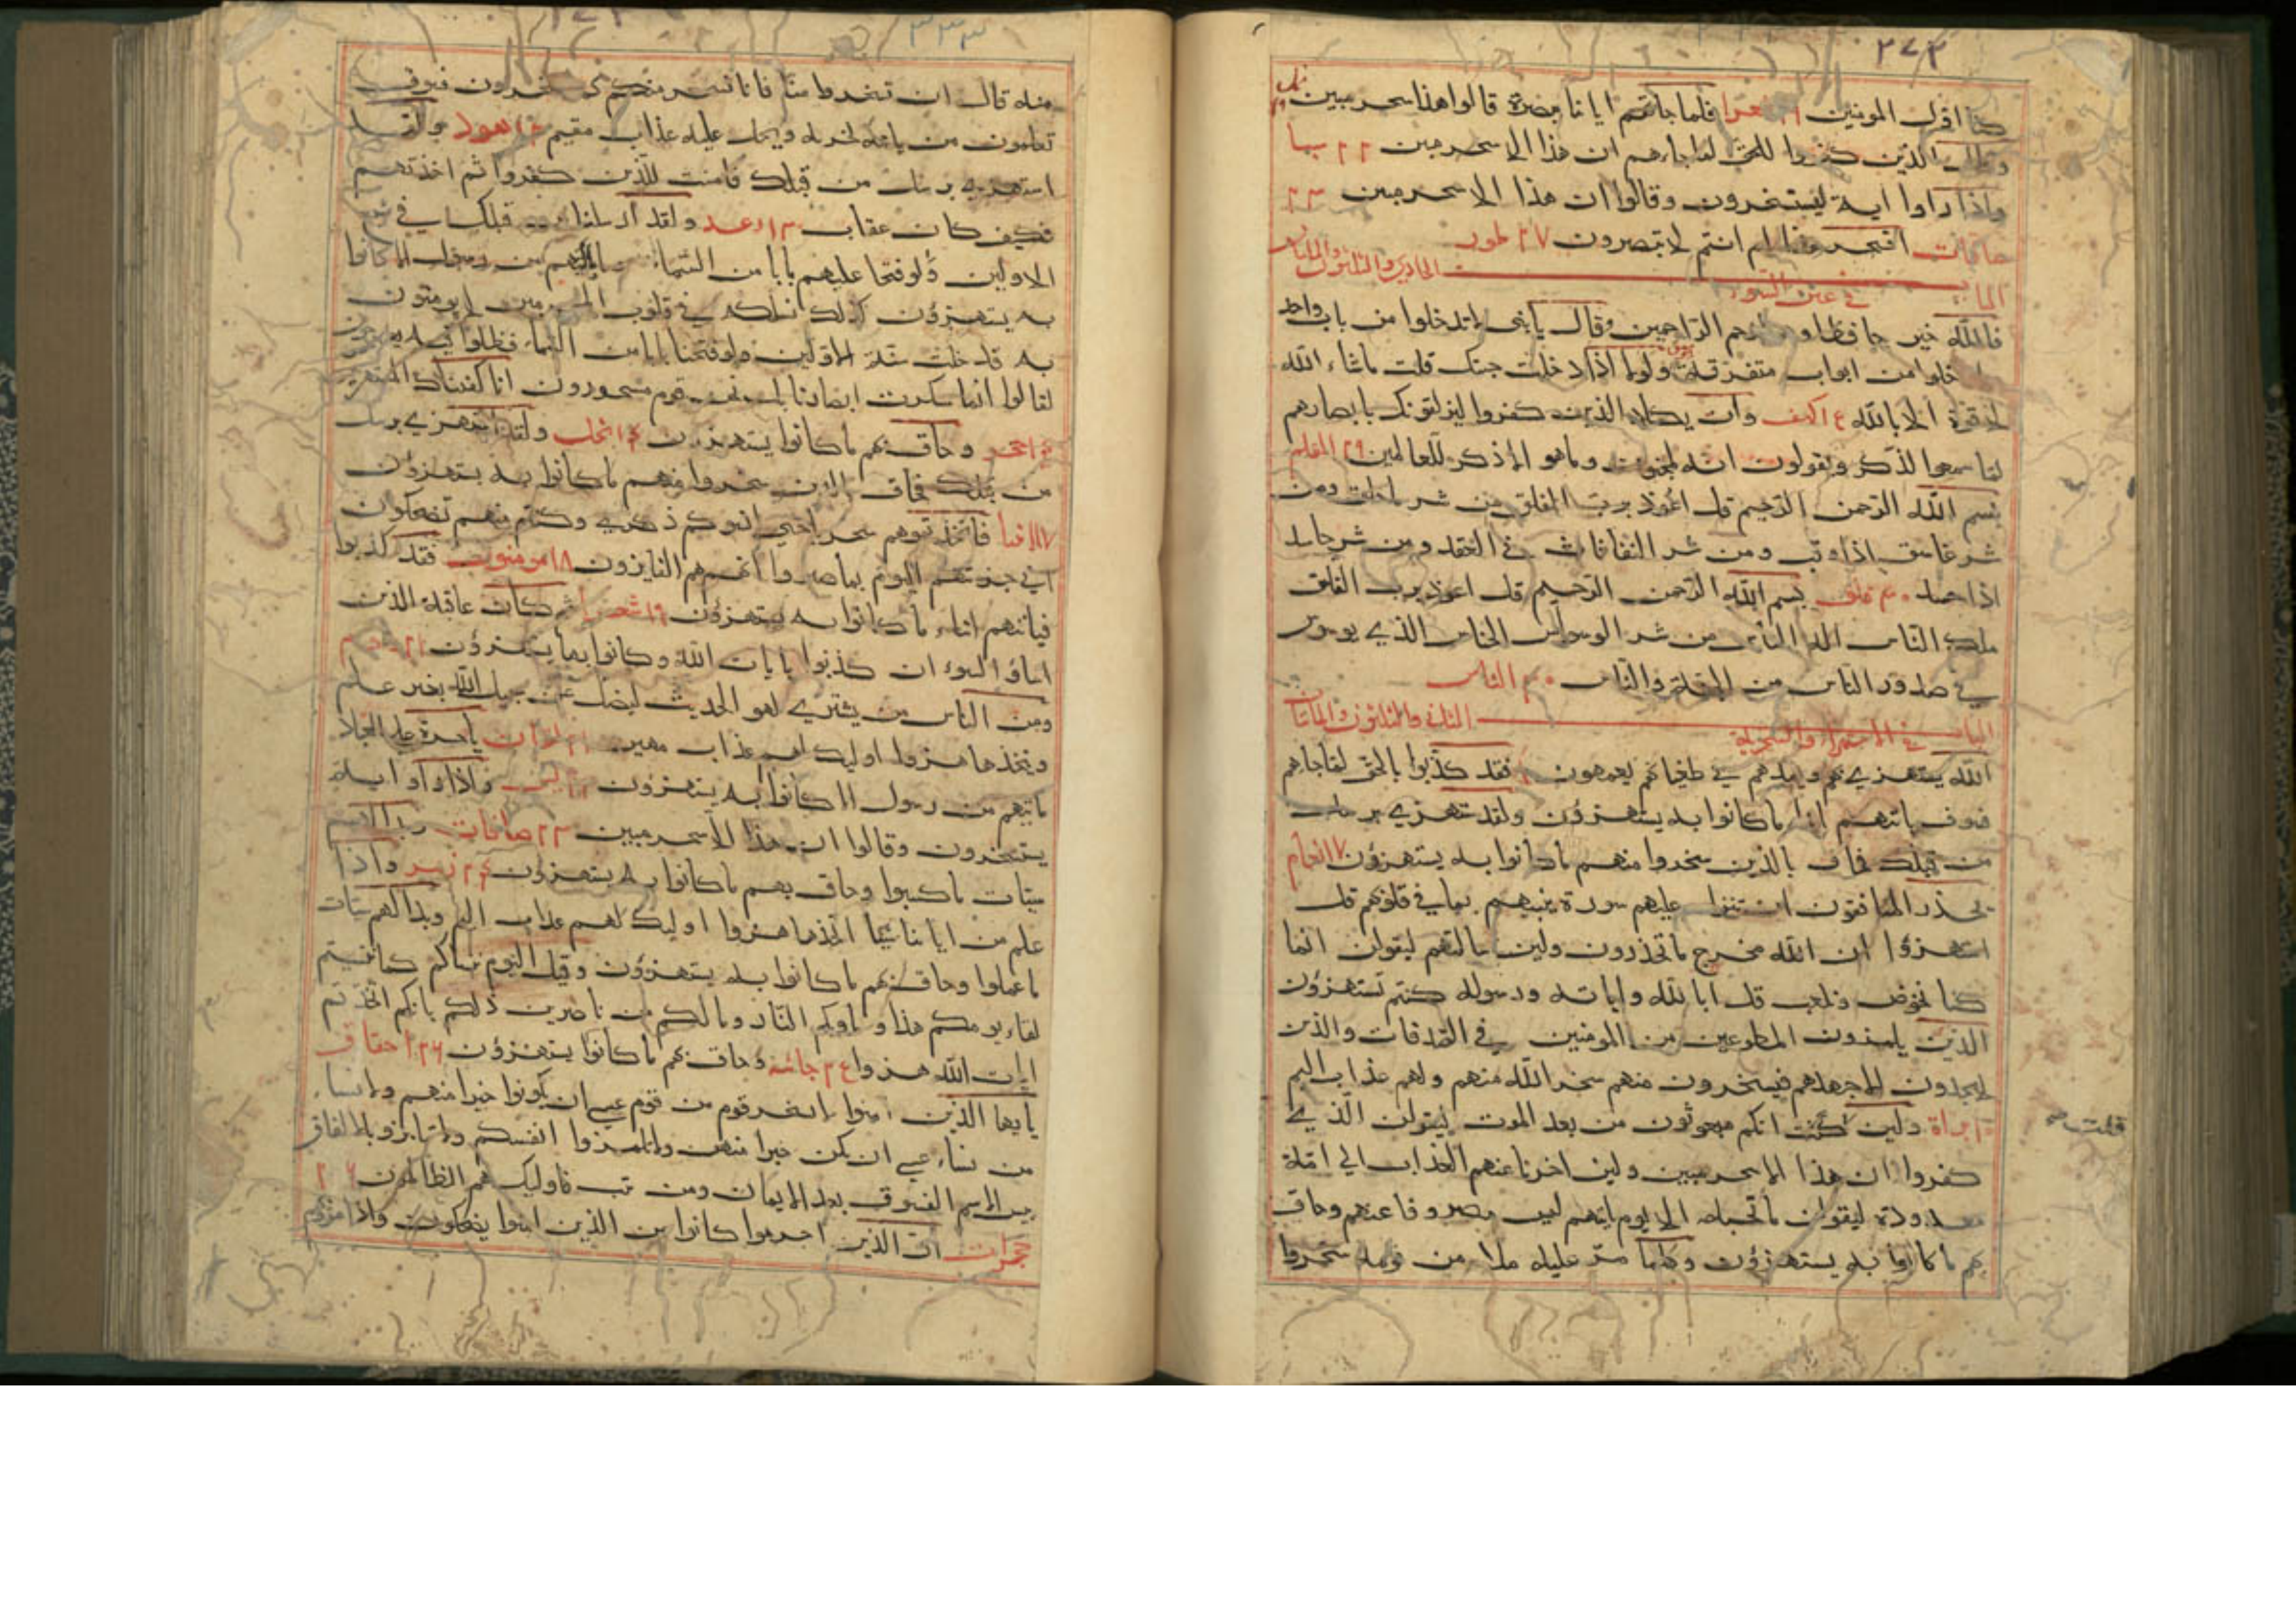 ٢٧٢
كنا اول المومنين ١٩ شعرا فلما جاتهم اياتنا مبصرة قالوا هذا سحر مبين نمل
وقال الذين كفروا للحق لما جاءهم ان هذا الا سحر مبين ٢٢ سبا
واذا راوا اية ليستسخرون وقالوا ان هذا الا سحر مبين ٢٣
صافات افسحر هذا ام انتم لا تبصرون ٢٧ طور
الباب الحادي والثلثون والمأتان
في عين السوء
فالله خير حافظا وهو ارحم الراحمين وقال يا بني لا تدخلوا من باب واحد
وادخلوا من ابواب متفرقة ولولا اذ دخلت جنتك قلت ما شاء الله
لا قوة الا بالله ع اكهف وان يكاد الذين كفروا ليزلقونك بابصارهم
لما سمعوا الذكر ويقولون انه لمجنون وما هو الا ذكر للعالمين ٢٩ القلم
بسم الله الرحمن الرحيم قل اعوذ برب الفلق من شر ما خلق ومن
شر غاسق اذا وقب ومن شر النفاثات في العقد ومن شر حاسد
اذا حسد ٣٠ فلق بسم الله الرحمن الرحيم قل اعوذ برب الفلق
ملك الناس اله الناس من شر الوسواس الخناس الذي يوسوس
في صدور الناس من الجنة والناس ٣٠ الناس
الباب الثاني والثلثون والمأتان
في الاستهزاء والسخرية
الله يستهزي بهم ويمدهم في طغيانهم يعمهون فقد كذبوا بالحق لما جاهم
فسوف ياتيهم انباء ما كانوا به يستهزؤن ولقد استهزي برسل
من قبلك فحاق بالذين سخروا منهم ما كانوا به يستهزؤن ٧ انعام
يحذر المنافقون ان تنزل عليهم سورة تنبيهم بما في قلوبهم قل
استهزؤا ان الله مخرج ما تحذرون ولين سالتهم ليقولن انما
كنا نخوض ونلعب قل ابالله واياته ورسوله كنتم تستهزؤن
الذين يلمزون المطوعين من المومنين في الصدقات والذين
لا يجدون الا جهدهم فيسخرون منهم سخر الله منهم ولهم عذاب اليم
١٠ براة ولين قلت انكم مبعوثون من بعد الموت ليقولن الذي
قلت صح
كفروا ان هذا الا سحر مبين ولين اخرنا عنهم العذاب الي امة
معدودة ليقولن ما يحبسه الا يوم ياتيهم ليس مصروفا عنهم وحاق
بهم ما كانوا به يستهزؤن وكلما مر عليه ملا من قومه سخروا
٣٣٣
منه قال ان تسخروا منا فانا نسخر منكم كما تسخرون فسوف
تعلمون من ياتيه عذاب يخزيه ويحل عليه عذاب مقيم ١٢ هود ولقد
استهزي برسل من قبلك فامليت للذين كفروا ثم اخذتهم
فكيف كان عقاب ١٣ رعد ولقد ارسلنا من قبلك في شيع
الاولين ولو فتحنا عليهم بابا من السماء وما ياتيهم من رسول الا كانوا
به يستهزؤن كذلك نسلكه في قلوب المجرمين لا يومنون
به قد خلت سنة الاولين ولو فتحنا بابا من السماء فظلوا فيه يعرجون
لقالوا انما سكرت ابصارنا بل نحن قوم مسحورون انا كفيناك المستهزين
١٤ حجر وحاق بهم ما كانوا يستهزؤن ١٤ نحل ولقد استهزي برسل
من قبلك فحاق بالذين سخروا منهم ما كانوا به يستهزؤن
١٧ الانبيا فاتخذتموهم سخريا حتي انسوكم ذكري وكنتم منهم تضحكون
اني جزيتهم اليوم بما صبروا انهم هم الفايزون ١٨ مومنون فقد كذبوا
فياتيهم انباء ما كانوا به يستهزؤن ١٩ شعرا ثم كان عاقبة الذين
اساؤا السوء ان كذبوا بايات الله وكانوا بها يستهزؤن ٢١ روم
ومن الناس من يشتري لهو الحديث ليضل عن سبيل الله بغير علم
ويتخذها هزوا اوليك لهم عذاب مهين ٢١ لقمان يا حسرة علي العباد
ما ياتيهم من رسول الا كانوا به يستهزؤن ٢٣ يس واذا راوا اية
يستسخرون وقالوا ان هذا الا سحر مبين ٢٣ صافات وبدا لهم
سيئات ما كسبوا وحاق بهم ما كانوا به يستهزؤن ٢٤ زمر واذا
علم من اياتنا شيئا اتخذها هزوا اوليك لهم عذاب اليم وبدا لهم سيئات
ما عملوا وحاق بهم ما كانوا به يستهزؤن وقيل اليوم ننساكم كما نسيتم
لقاء يومكم هذا وماويكم النار وما لكم من ناصرين ذلكم بانكم اتخذتم
ايات الله هزوا ٢٤ جاثيه وحاق بهم ما كانوا يستهزؤن ٢٦ احقاف
يا ايها الذين امنوا لا يسخر قوم من قوم عسي ان يكونوا خيرا منهم ولا نساء
من نساء عسي ان يكن خيرا منهن ولا تلمزوا انفسكم ولا تنابزوا بالالقاب
بيس الاسم الفسوق بعد الايمان ومن لم يتب فاوليك هم الظالمون ٢٦
حجرات ان الذين اجرموا كانوا من الذين امنوا يضحكون واذا مروا بهم